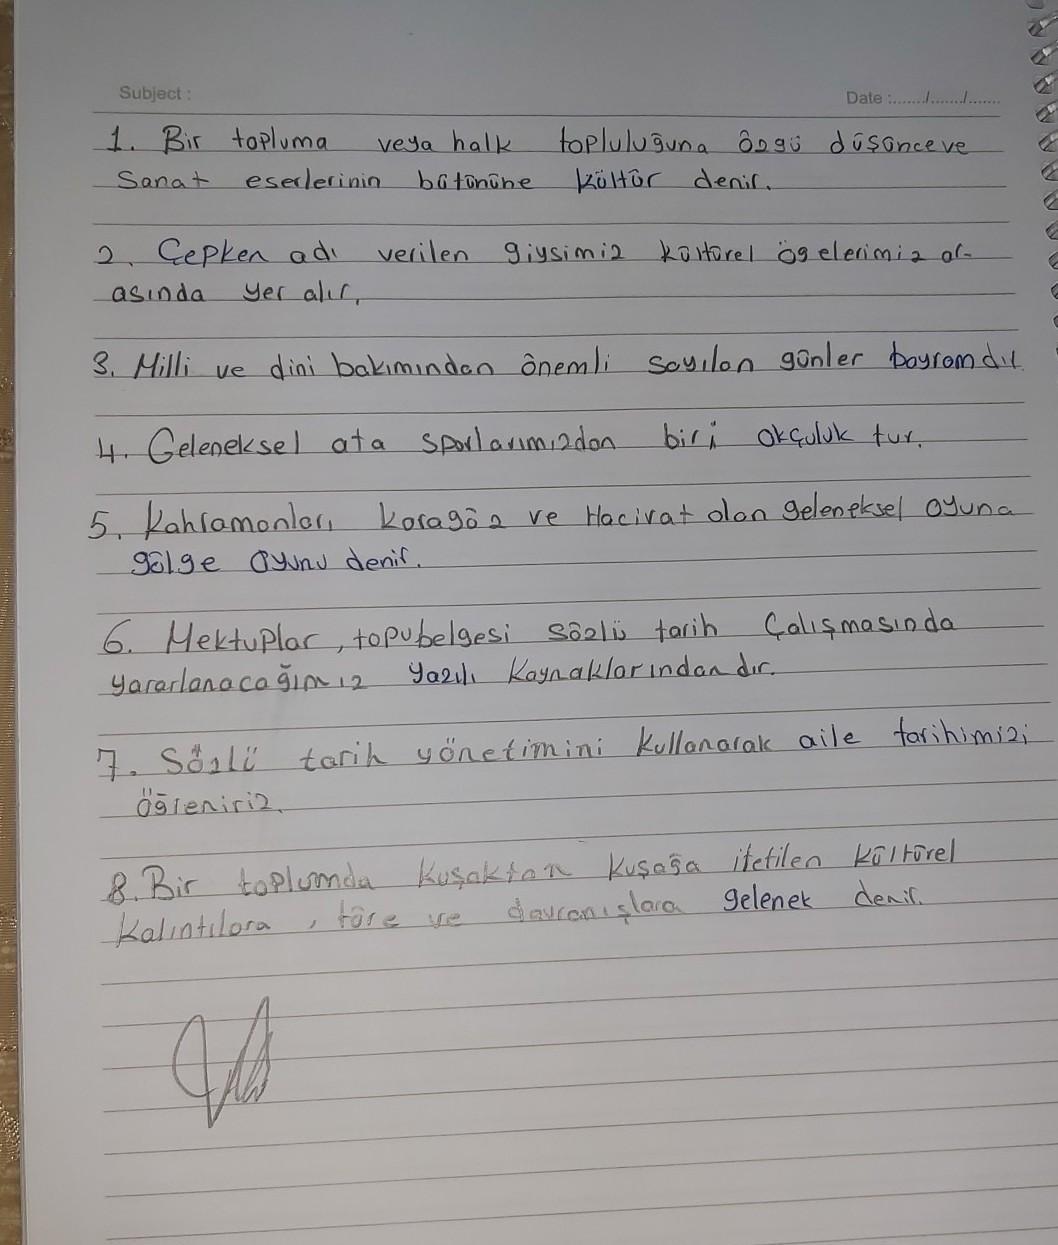 Subject :
Date :......./......./.......
1. Bir topluma veya halk topluluğuna özgü düşünce ve
Sanat eserlerinin bütününe kültür denir.
2. Cepken adı verilen giysimiz kültürel ögelerimiz ar-
asında yer alır.
3. Milli ve dini bakımından önemli sayılan günler bayramdır
4. Geleneksel ata sporlarımızdan biri okçuluk tur.
5. Kahramanları Karagöz ve Hacivat olan geleneksel oyuna
gölge oyunu denir.
6. Mektuplar, topubelgesi sözlü tarih Çalışmasında
yararlanacağımız yazılı kaynaklarındandır.
7. Sözlü tarih yönetimini kullanarak aile tarihimizi
öğreniriz.
8. Bir toplumda kuşaktan kuşağa iletilen kültürel
kalıntılara, töre ve davranışlara gelenek denir.